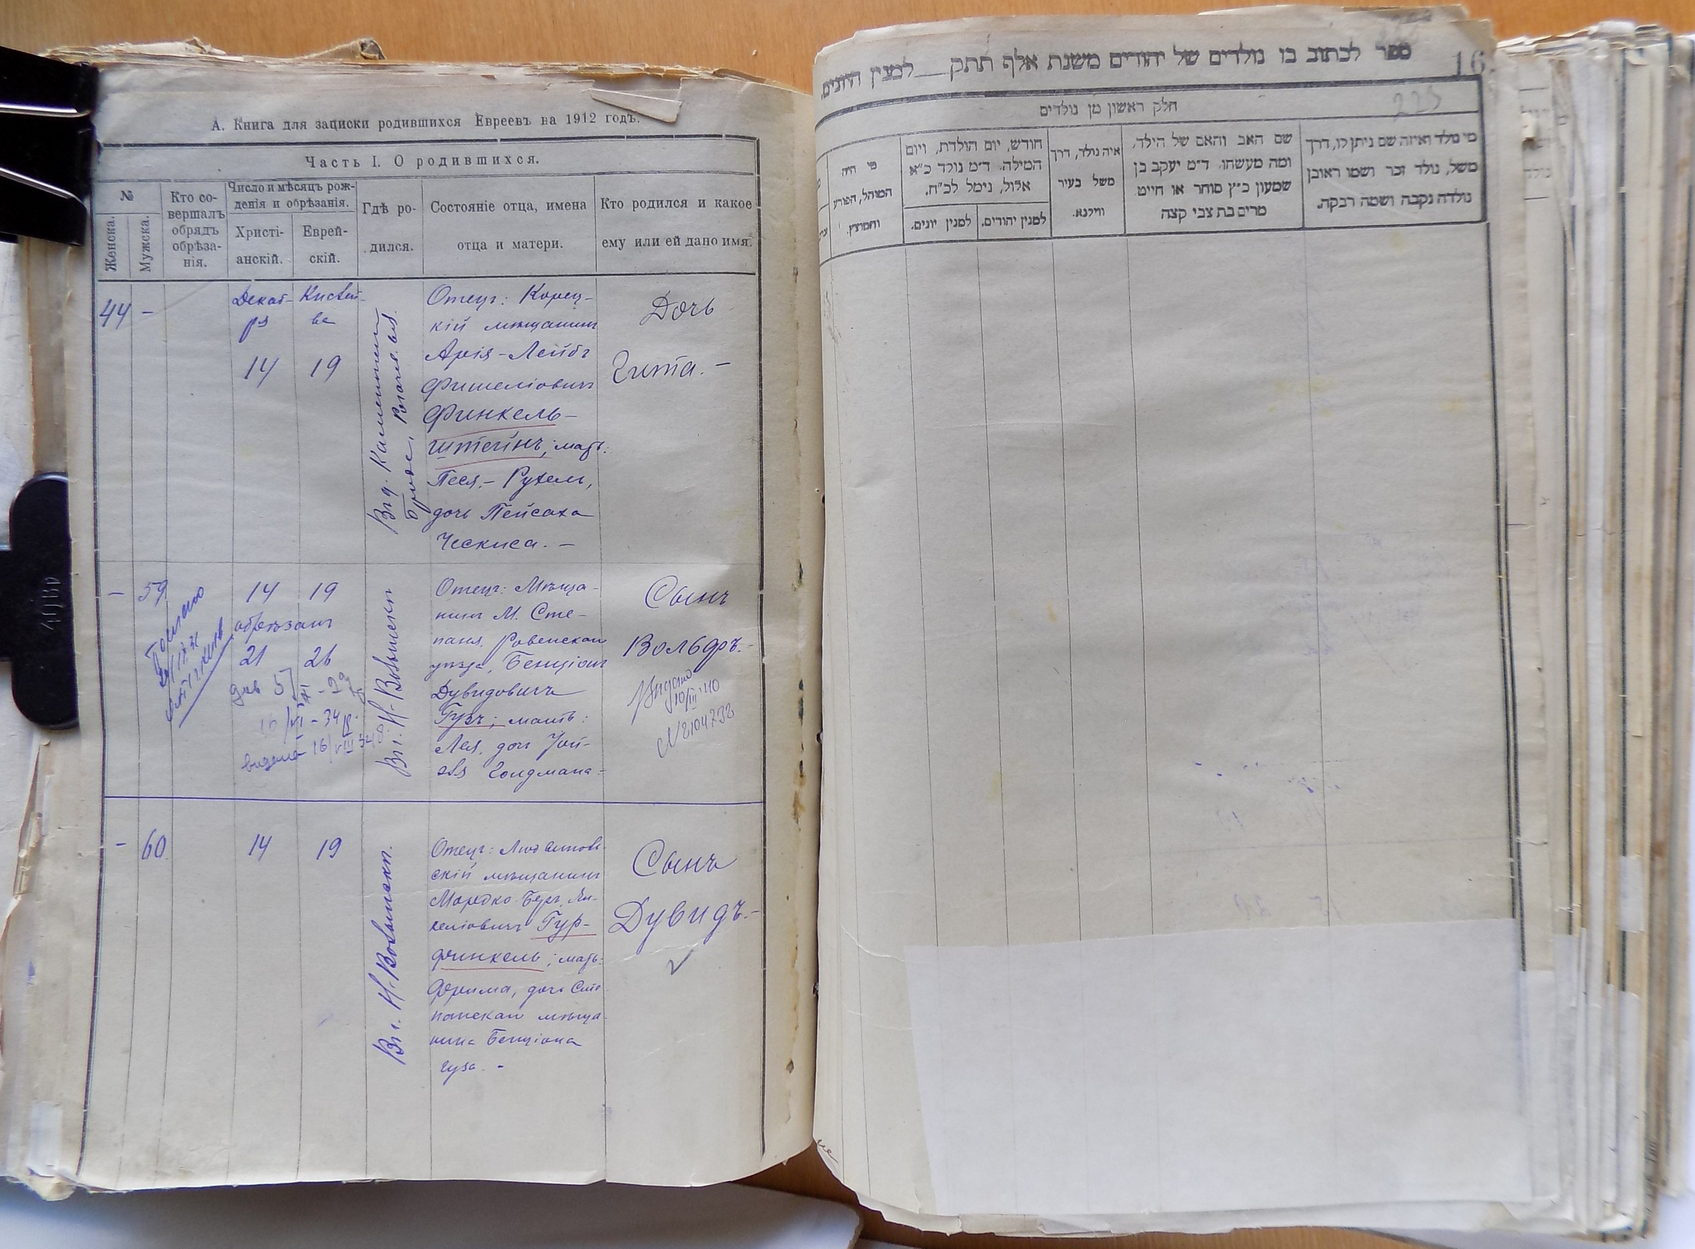 А. Книга для записки родившихся Евреевъ на 1912 годъ.
Часть I. О родившихся.
№
Женска.
Мужска.
Кто со-
вершалъ
обрядъ
обрѣза-
нія.
Число и мѣсяцъ рож-
денія и обрѣзанія.
Христі-
анскій.
Еврей-
скій.
Гдѣ ро-
дился.
Состояніе отца, имена
отца и матери.
Кто родился и какое
ему или ей дано имя.
44
-
Декаб-
ря
14
Кислей-
ве
19
Отецъ: Корец-
кій мѣщанинъ
Арія-Лейбъ
Фишеліовичъ
Финкель-
штейнъ; мать:
Песя-Рухель,
дочь Пейсаха
Ческиса. -
Дочь
Гита. -
-
59
14
19
обрѣзанъ
21
26
Въ с. Н-Волынскѣ
Отецъ: Мѣща-
нинъ М. Сте-
паня, Ровенскаго
уѣзда, Бенціонъ
Дувидовичъ
Гузъ; мать:
Лея, дочь
Гольдмана-
Сынъ
Вольфъ. -
Выдано
10/III 40
№ 2104232
выдана 16/VIII 34
-
60
14
19
Въ г. Н-Волынскѣ.
Отецъ: Людвипов
скій мѣщанинъ
Мордко-Беръ
Гур-
финкель; мать:
Фрима, дочь Сте
панскаго мѣща
нина Бенціона
Гуза. -
Сынъ
Дувидъ. -
ספר לכתוב בו נולדים של יהודים משנת אלף תתק למנין היונים.
16
225
חלק ראשון מן נולדים
מי נולד ואיזה שם ניתן לו, דרך
משל, נולד זכר ושמו ראובן
נולדה נקבה ושמה רבקה.
שם האב והאם של הילד,
ומה מעשהו. ד״מ יעקב בן
שמעון כ״ץ סוחר או חייט
מרים בת צבי קצה
איה נולד, דרך
משל בעיר
ווילנא.
חודש, יום הולדת, ויום
המילה. ד״מ נולד כ״א
אלול, נימל לכ״ח.
למנין יהודים.
למנין יונים.
מי היה
המוהל, הפורע
והמוצץ.